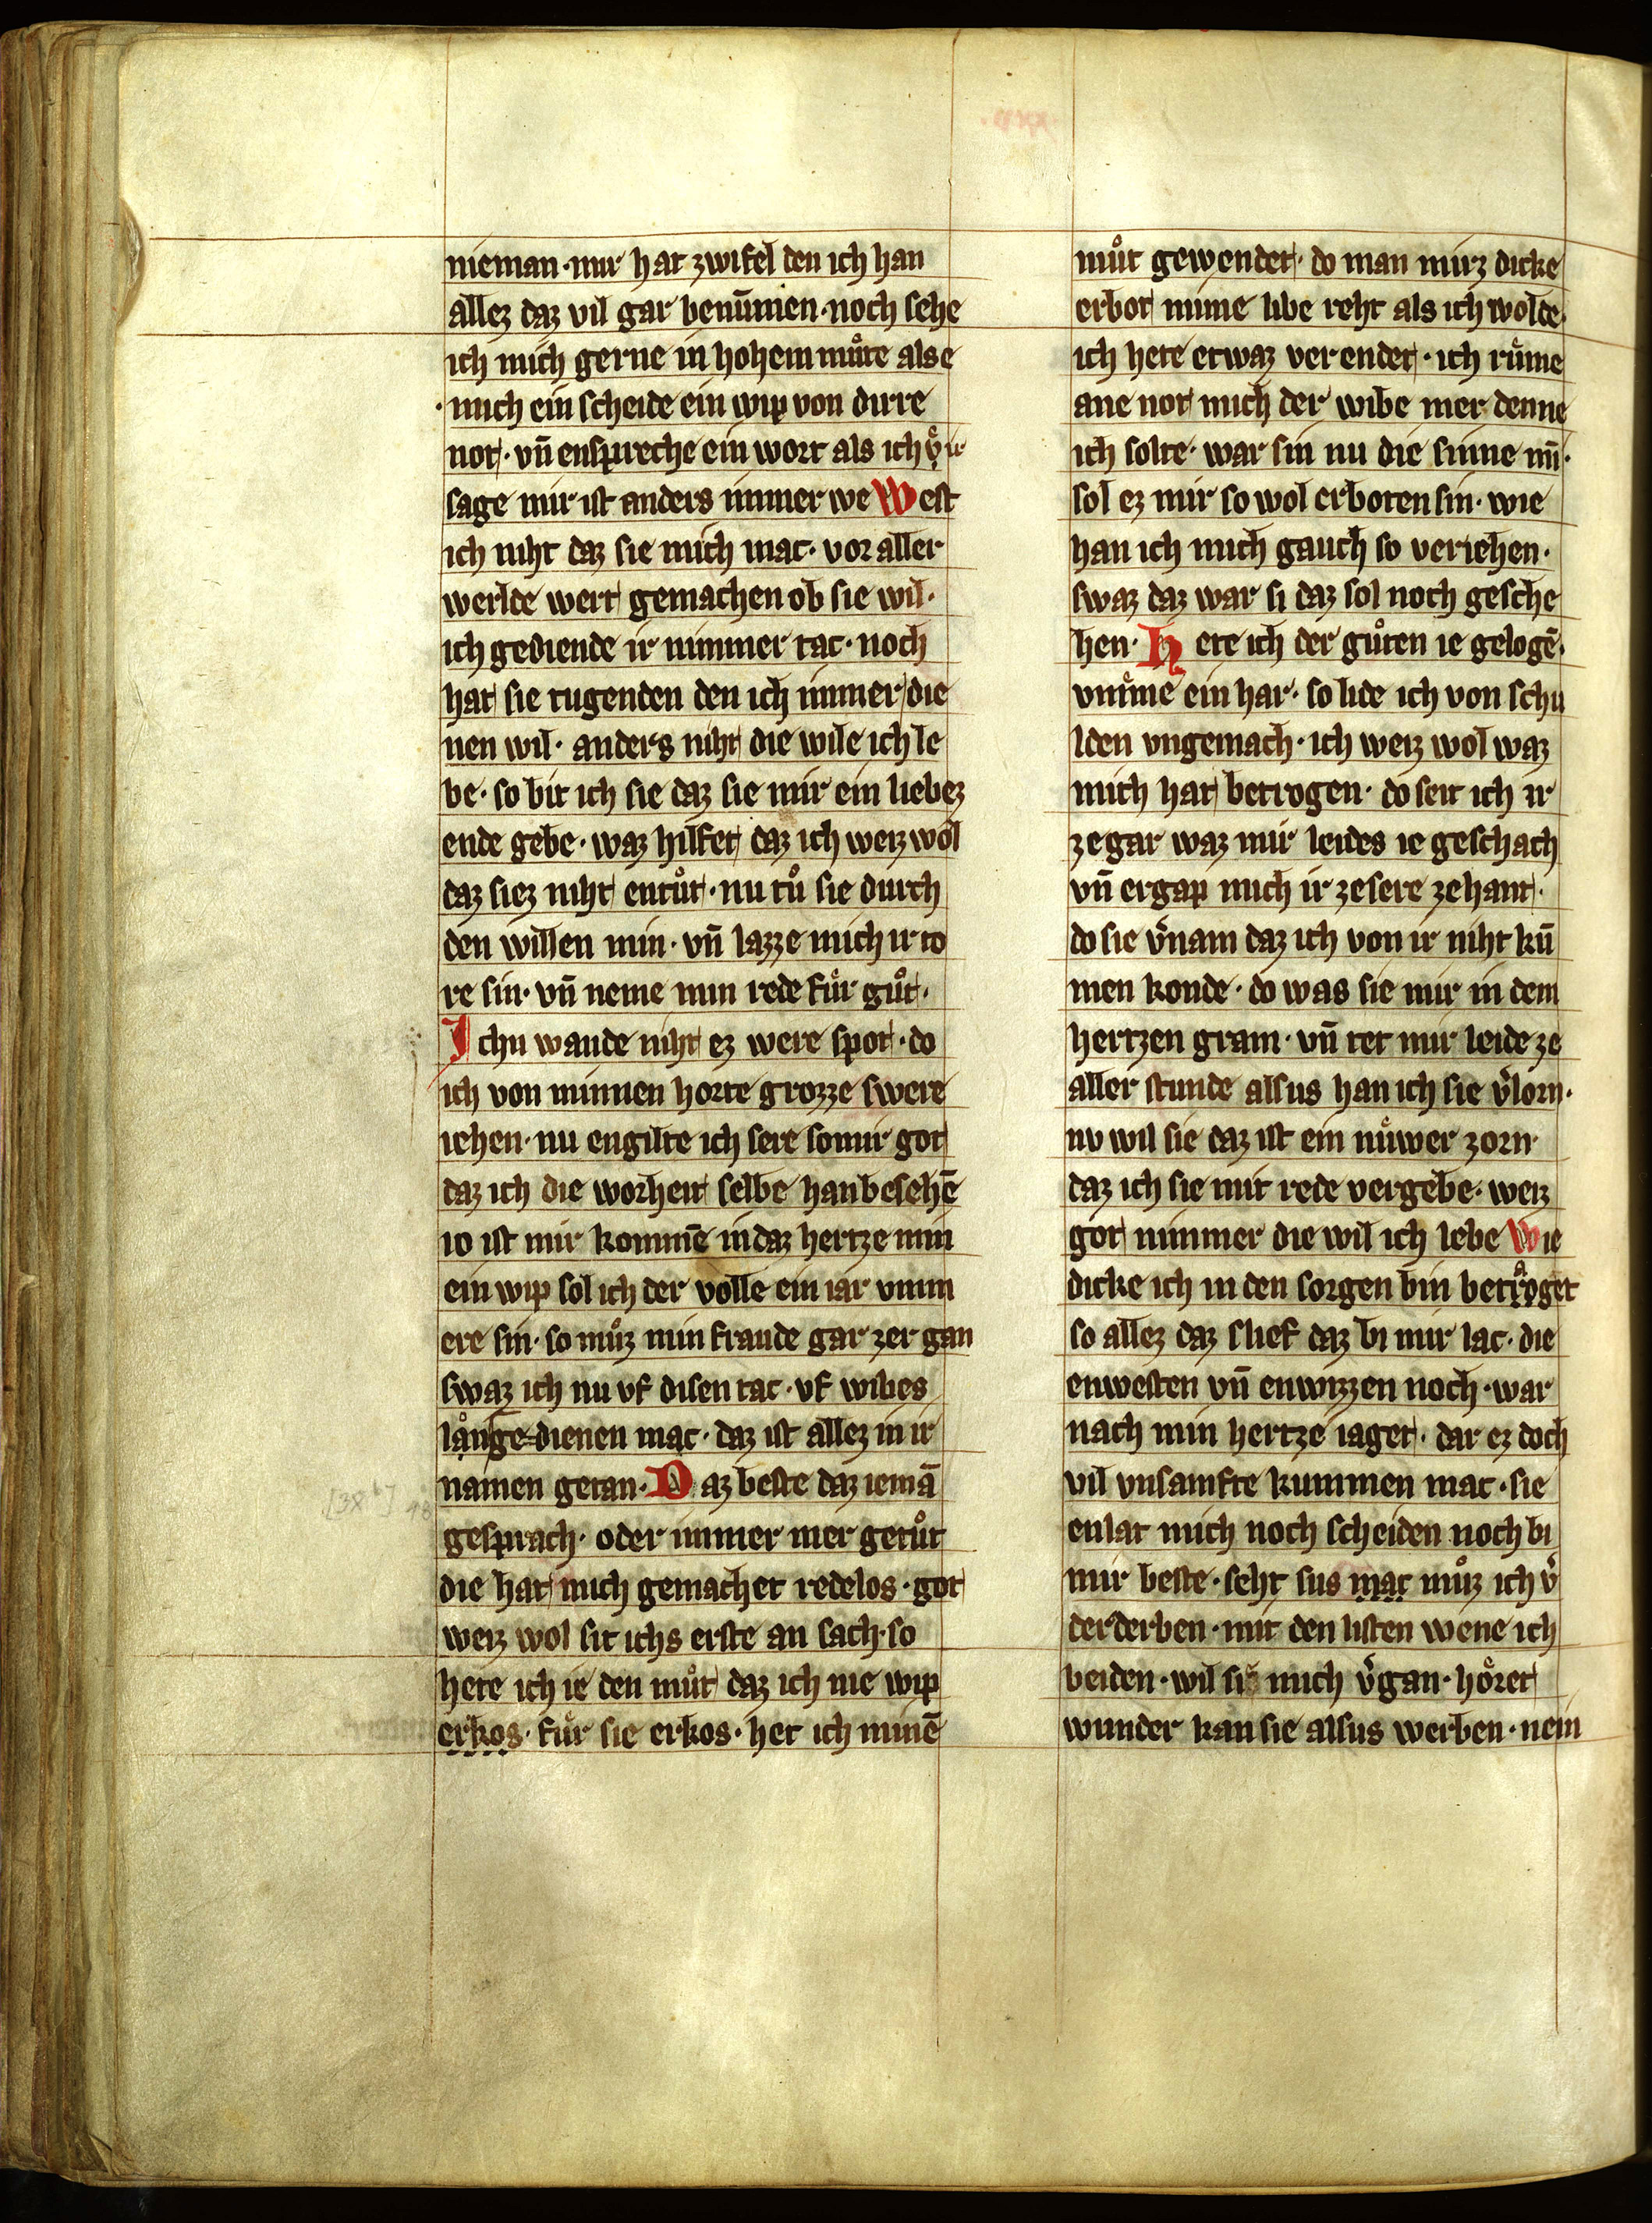 nieman · mir hat zwifel den ich han
allez daz vil gar benūmen · noch sehe
ich mich gerne in hohem muͦte als e
· mich ein scheide ein wip von dirre
not · vn̄ enspreche ein wort als ich ir
sage mir ist anders immer we West
ich niht daz sie mich mac · vor aller
werlde wert gemachen ob sie wil ·
ich gediende ir nimmer tac · noch
hat sie tugenden den ich immer die
nen wil · anders niht die wile ich le
be · so bit ich sie daz sie mir ein liebez
ende gebe · waz hilfet daz ich weiz wol
daz siez niht entuͦt · nu tuͦ sie durch
den willen min · vn̄ lazze mich ir to
re sin · vn̄ neme min rede fuͤr guͦt ·
Ichn wande niht ez were spot · do
ich von minnen horte grozze swere
iehen · nu engilte ich sere so mir got
daz ich die worheit selbe han besehē
io ist mir kommē in daz hertze min
ein wip sol ich der volle ein iar vnm
ere sin · so muͦz min fraude gar zer gan
swaz ich nu vf disen tac · vf wibes
lange dienen mac · daz ist allez in ir
namen getan · Daz beste daz iemā
gesprach · oder immer mer getuͦt
die hat mich gemachet redelos · got
weiz wol sit ichs erste an sach · so
hete ich ie den muͦt daz ich nie wip
erkos · fuͤr sie erkos · het ich minē
muͦt gewendet · do man mirz dicke
erbot mime libe reht als ich wolde ·
ich hete etwaz verendet · ich ruͤme
ane not mich der wibe mer denne
ich solte · war sin nu die sinne min ·
sol ez mir so wol erboten sin · wie
han ich mich gauch so veriehen ·
swaz daz war si daz sol noch gesche
hen · Hete ich der guͦten ie gelogē ·
vmme ein har · so lide ich von schu
lden vngemach · ich weiz wol waz
mich hat betrogen · do seit ich ir
ze gar waz mir leides ie geschach
vn̄ ergap mich ir ze sere ze hant ·
do sie v͛nam daz ich von ir niht kū
men konde · do was sie mir in dem
hertzen gram · vn̄ tet mir leide ze
aller stunde alsus han ich sie v͛lorn ·
nv wil sie daz ist ein nuͤwer zorn ·
daz ich sie mit rede vergebe · weiz
got nimmer die wil ich lebe Wie
dicke ich in den sorgen bin betraget
so allez daz slief daz bi mir lac · die
enwesten vn̄ enwizzen noch · war
nach min hertze iaget · dar ez doch
vil vnsamfte kummen mac · sie
enlat mich noch scheiden noch bi
mir beste · seht sus mac muͦz ich v͛
derderben · mit den listen wene ich
beiden · wil sie mich v͛gan · hoͤret
wunder kan sie alsus werben · nein